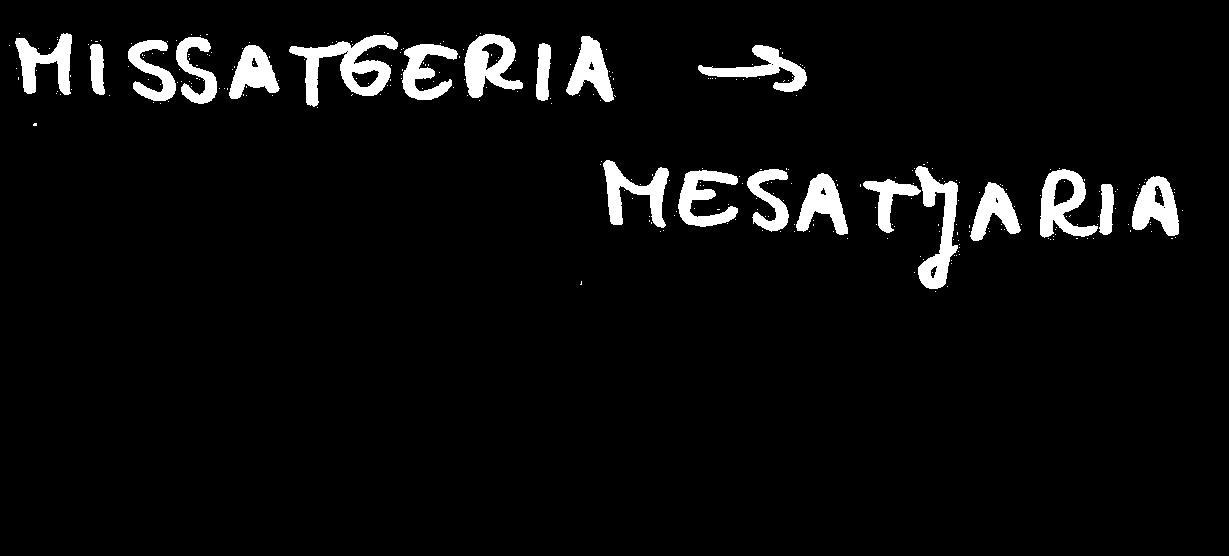 MISSATGERIA →
MESATJARIA